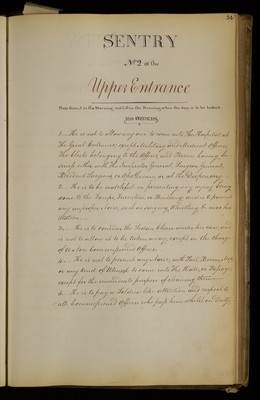 34
SENTRY
No. 2 at the
Upper Entrance
From Gun fire in the Morning until 10 in the Evening when the door is to be locked.
HIS ORDERS
1. He is not to allow any one to come into the Hospital at
the Great Entrance, except Military and Medical Officers,
the Clerks belonging to the Offices and Persons having bu-
siness either with the Inspector General, Surgeon General,
Resident Surgeon or Apothecary or at the Dispensary.
2. He is to be watchful in preventing any injury being
done to the Lamps, or Building and to prevent
any improper noise, such as singing, Whistling &c near his
Station.
3. He is to consider the Sedan Chair under his care, and
is not to allow it to be taken away, except in the charge
of a Non Commissioned Officer.
4. He is not to permit any with
or any kind of to come into the Hall, or Passage,
except for the immediate purpose of cleaning them.
5. He is to pay a Soldier like attention and respect to
all Commissioned Officers who pass him while on Duty.